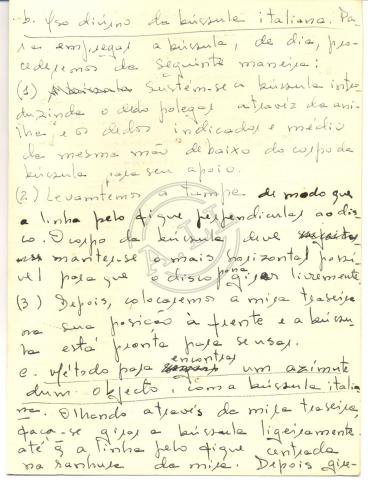 b. Uso diurno da bússula italiana. Pa-
ra empregar a bússula, de dia, pro-
cederemos da seguinte maneira:
(1) Sustém-se a bússula intro-
duzindo o dedo polegar através da ani-
lha, e os dedos indicador e médio
da mesma mão debaixo do corpo da
bússula para seu apoio.
(2) Levantemos a tampa de modo que
a linha pelo fique perpendicular ao dis-
co. O corpo da bússula deve
manter-se o mais horizontal possi-
vel para que o disco possa girar livremente
(3) Depois, colocaremos a mira traseira
na sua posição à frente e a bússu-
la está pronta para se usar.
c. Método para encontrar um azimute
dum objecto, com a bússula italia-
na. Olhando através da mira traseira,
faça-se girar a bússula ligeiramente
até q̃ a linha pelo fique centrada
na ranhura da mira. Depois gire-